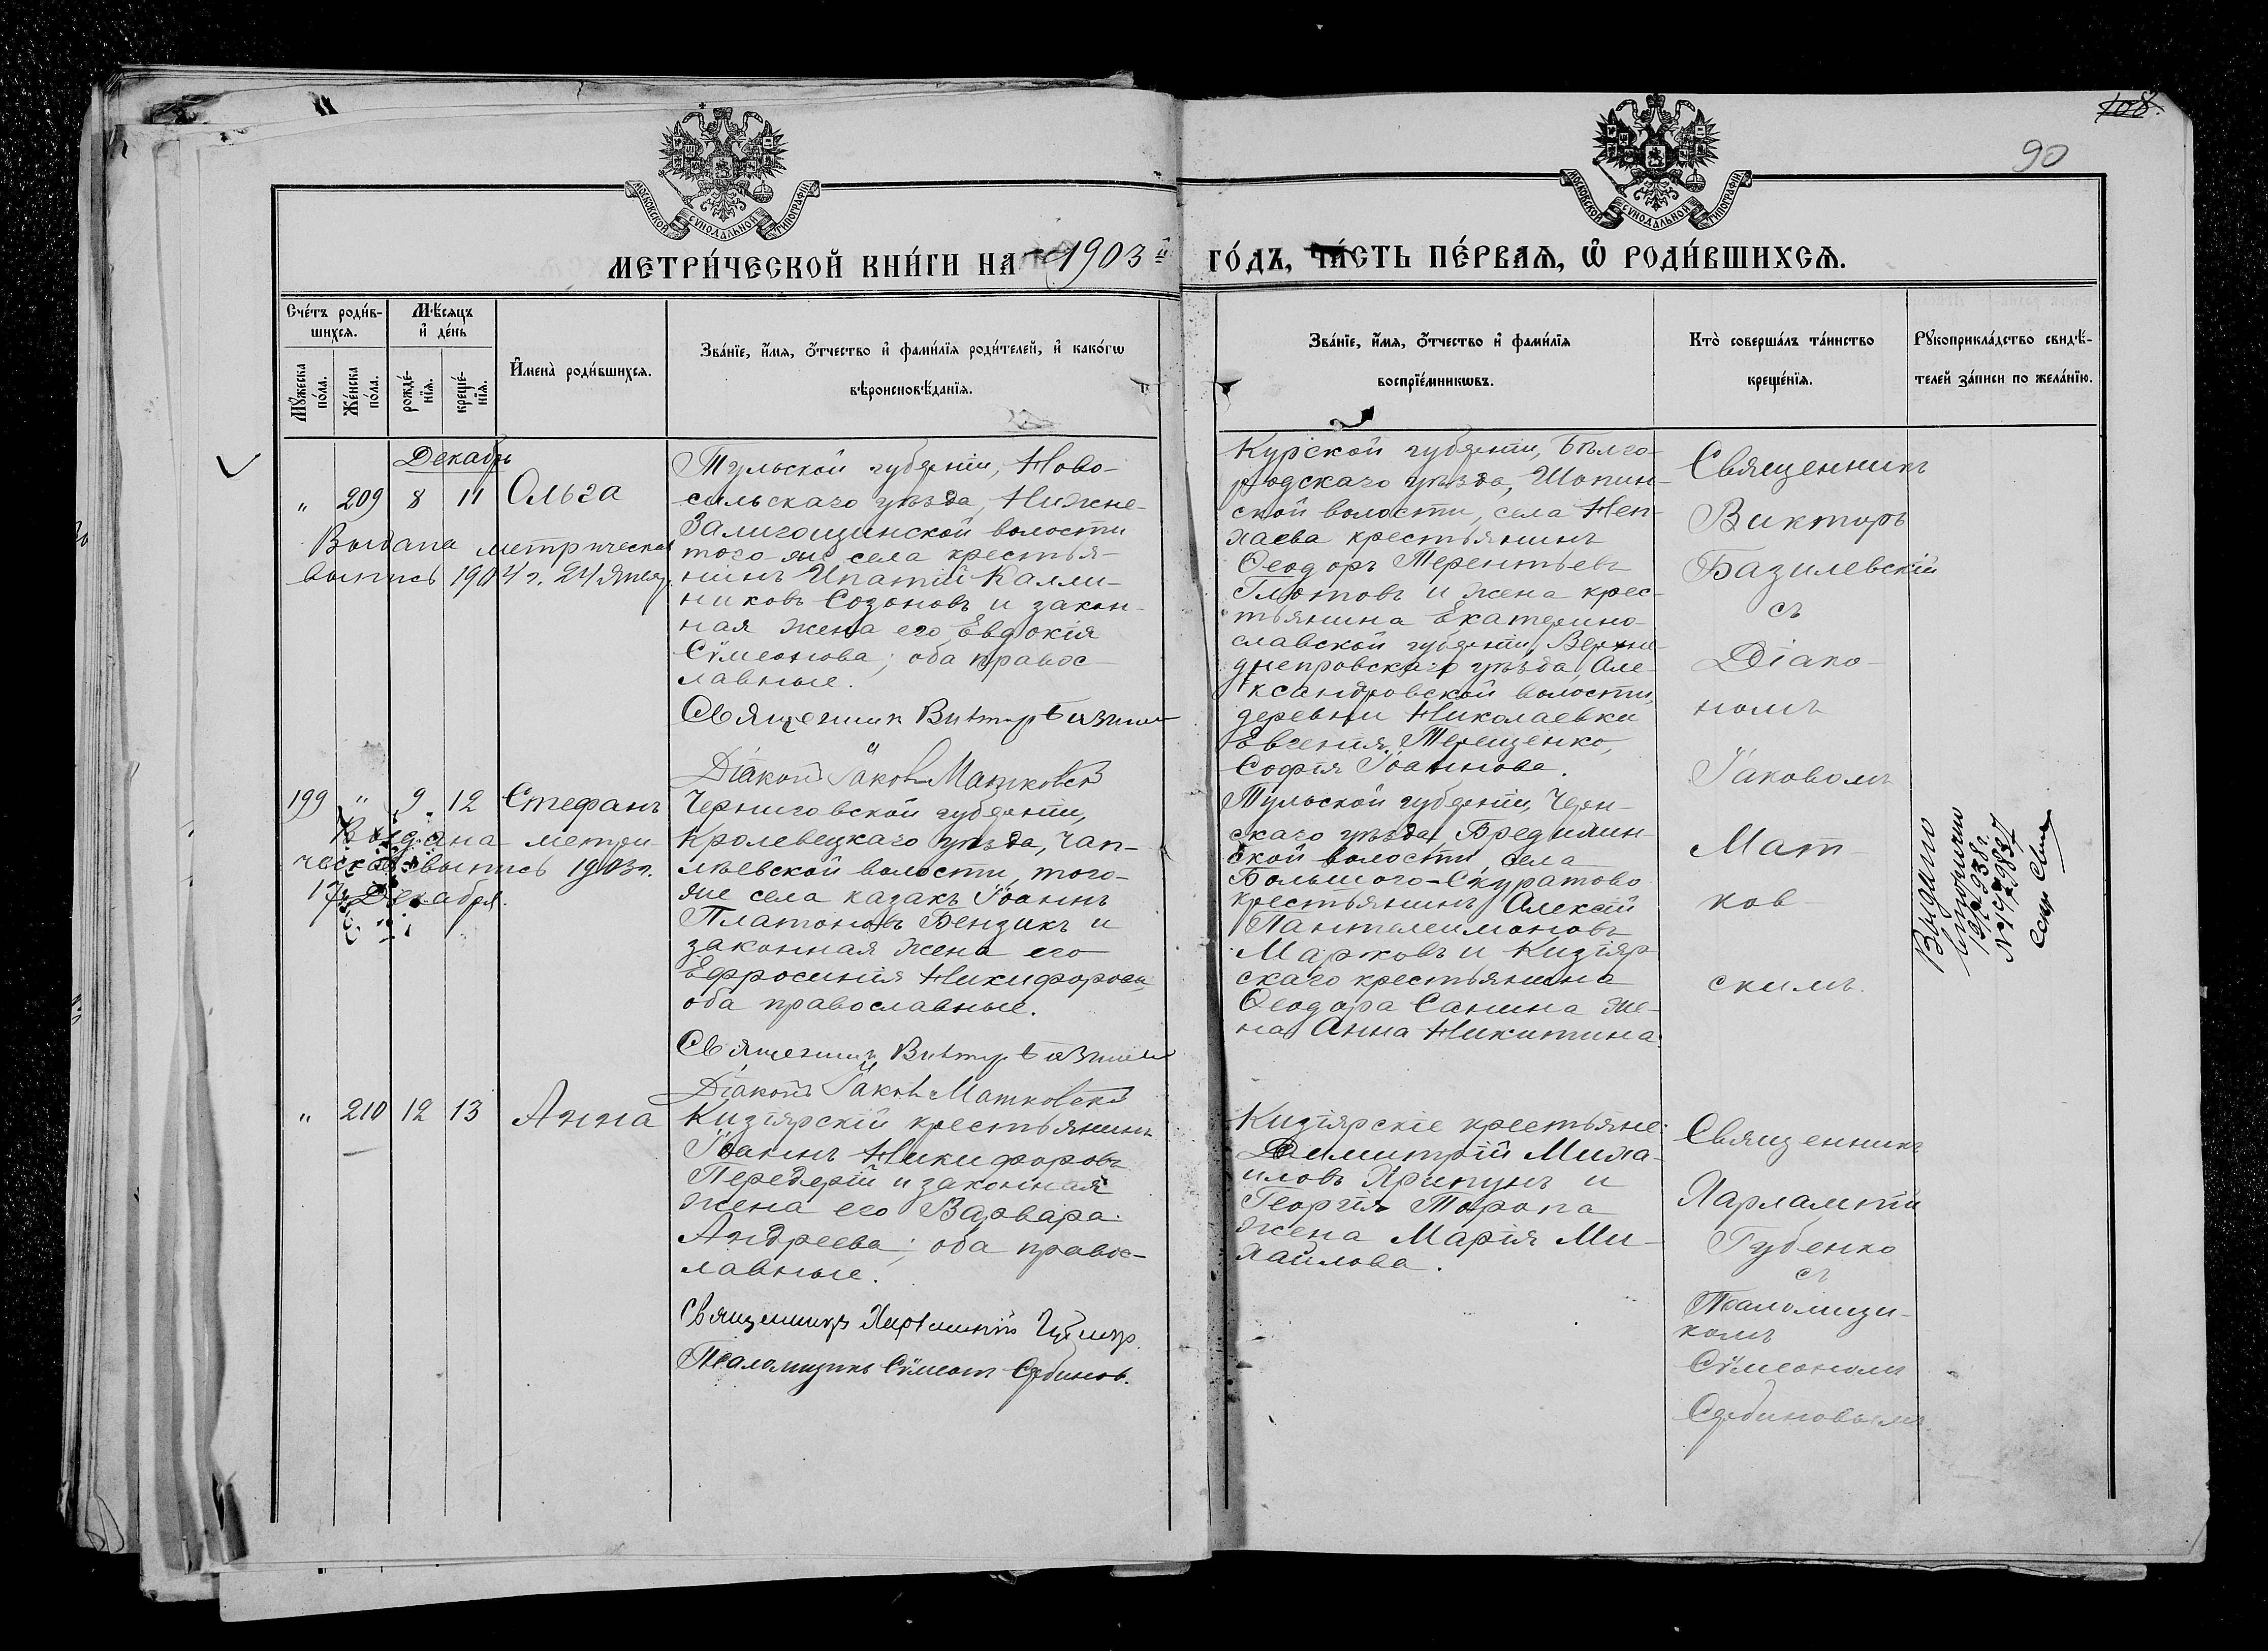 108.
90
МОСКОВСКОЙ СѴНОДАЛЬНОЙ ТИПОГРАФІИ
МОСКОВСКОЙ СѴНОДАЛЬНОЙ ТИПОГРАФІИ
МЕТРИ́ЧЕСКОЙ КНИ́ГИ НА 1903 й
ГО́ДЪ, ЧА́СТЬ ПЕ́РВАѦ, Ѽ РОДИ́ВШИХСѦ.
Сче́тъ роди́в-
шихсѧ.
Мѣ́сѧцъ
и҆ де́нь
Мꙋ́жеска
по́ла.
Же́нска
по́ла.
рожде́-
нїѧ.
креще́-
нїѧ.
И҆мена̀ роди́вшихсѧ.
Зва́нїе, и҆́мѧ, ѻ҆́тчество и҆ фами́лїѧ роди́телей, и҆ како́гѡ
вѣроисповѣ́данїѧ.
Зва́нїе, и҆́мѧ, ѻ҆́тчество и҆ фами́лїѧ
воспрїе́мникѡвъ.
Кто̀ соверша́лъ та́инство
креще́нїѧ.
Рꙋкоприкла́дство свидѣ́-
телей за́писи по жела́нїю.
Декабрь
" 209 8 11 Ольга
Выдана метрическая
выпись 1904 г. 24 Январ.
Тульской губерніи, Ново-
сильскаго уѣзда, Нижне-
Залегощинской волости
того-же села крестья-
нинъ Ипатій Калли-
никовъ Созоновъ и закон-
ная жена его Евдокія
Сѵмеонова; оба правос-
лавные.
Священникъ Викторъ
Діаконъ Іаковъ Матковскій
Курской губерніи, Бѣлго-
родскаго уѣзда, Шопин-
ской волости, села Неп-
хаева крестьянинъ
Ѳеодоръ Терентьевъ
Глотовъ и жена крес-
тьянина Екатерино-
славской губерніи, Верхне-
днепровскаго уѣзда, Але-
ксандровской волости,
деревни Николаевки
Евгенія Терещенко,
Софія Іоаннова.
Священникъ
Викторъ
Базилевскій
съ
Діако-
номъ
Іаковомъ
Мат-
ков-
скимъ.
199 " 9 12 Стефанъ
Выдана метри-
ческая выпись 1903 г.
17 Декабря.
Черниговской губерніи,
Кролевецкаго уѣзда, Чап-
лѣевской волости, того-
же села казакъ Іоаннъ
Платоновъ Бензикъ и
законная жена его
Ефросинія Никифорова,
оба православные.
Священникъ Викторъ
Діаконъ Іаковъ Матковскій
Тульской губерніи, Черн-
скаго уѣзда, Бредихин-
ской волости, села
Большого-Скуратово
крестьянинъ Алексій
Пантелеимоновъ
Марковъ и Кизіяр-
скаго крестьянина
Ѳеодора Санина же-
на Анна Никитина.
Видано
вторично
1938 г.
" 210 12 13 Анна
Кизіярскій крестьянинъ
Іоаннъ Никифоровъ
Передерій и законная
жена его Варвара
Андреева; оба правос-
лавные.
Священникъ Харлампій Губенко.
Псаломщикъ Сѵмеонъ Сербиновъ.
Кизіярскіе крестьяне:
Димитрій Миха-
иловъ Хрипунъ и
Георгія Торопа
жена Марія Ми-
хайлова.
Священникъ
Харлампій
Губенко
съ
Псаломщи-
комъ
Сѵмеономъ
Сербиновымъ